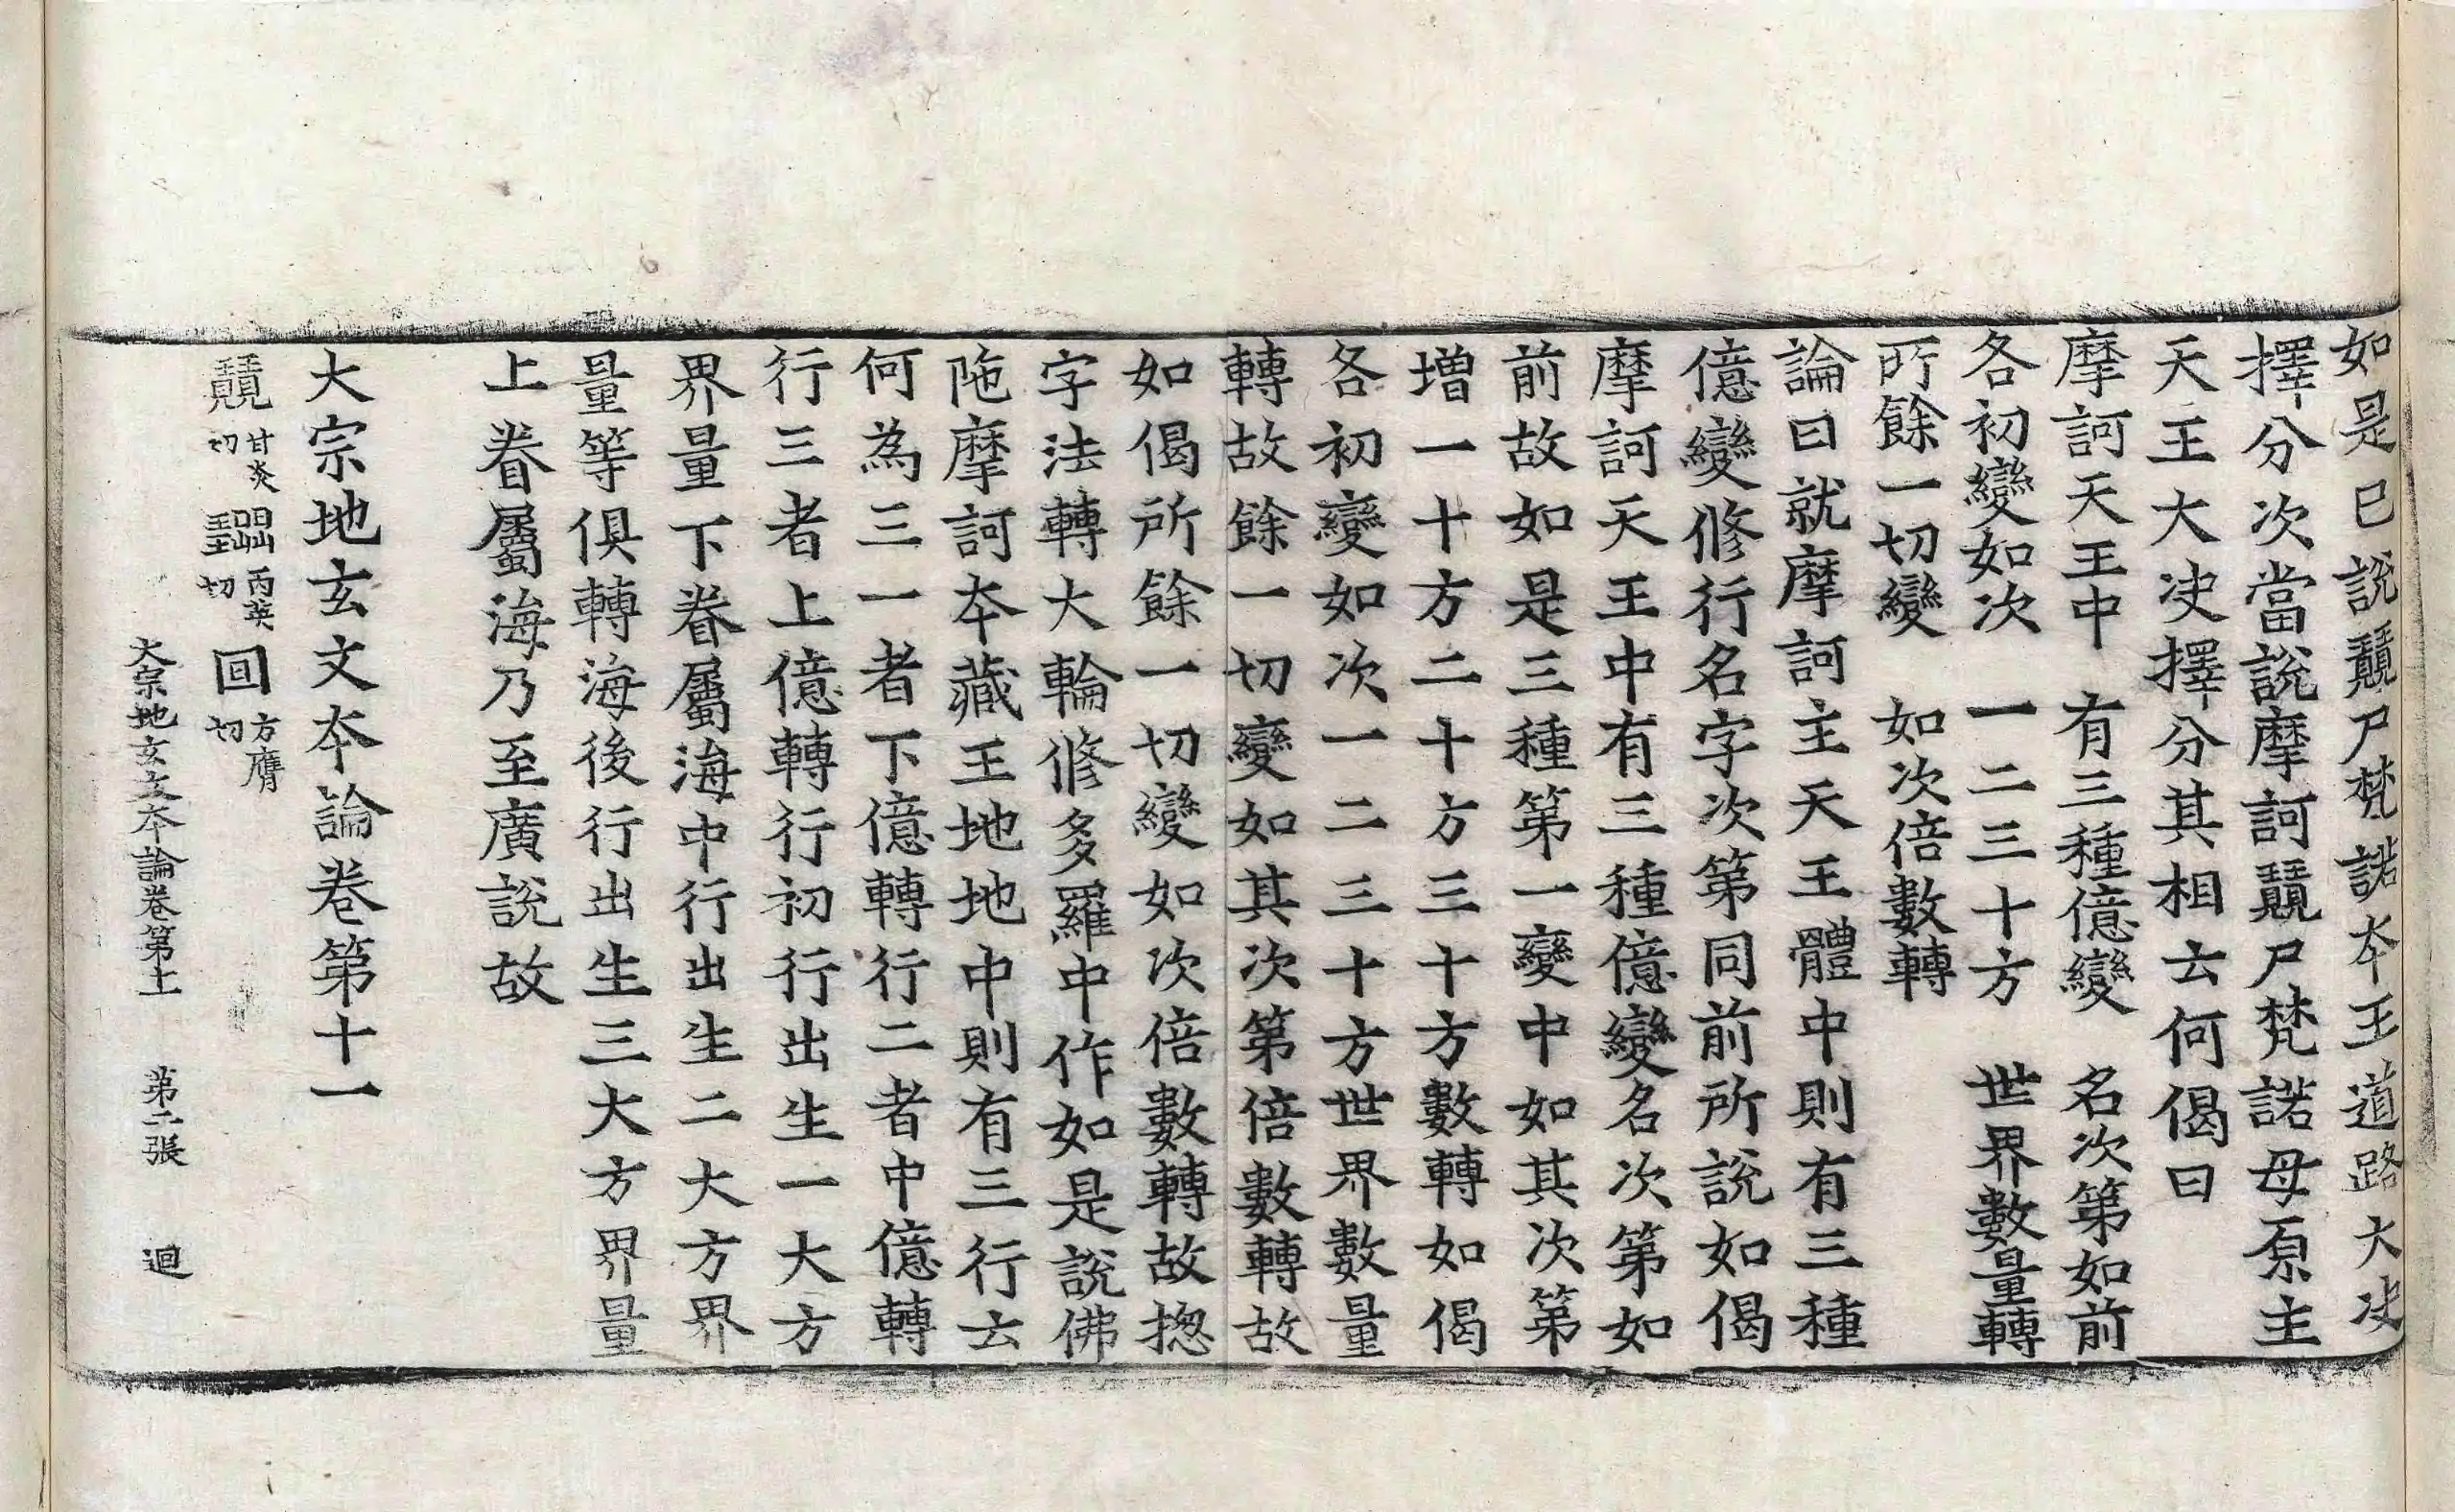 如是已說䶬尸梵諾夲王道路大决
擇分次當說摩訶䶬尸梵諾母原主
天王大决擇分其相云何偈曰
摩訶天王中　有三種億變　名次第如前
各初變如次　一二三十方　世界數量轉
所餘一切變　如次倍數轉
論曰就摩訶主天王體中則有三種
億變修行名字次第同前所說如偈
摩訶天王中有三種億變名次第如
前故如是三種第一變中如其次第
增一十方二十方三十方數轉如偈
各初變如次一二三十方世界數量
轉故餘一切變如其次第倍數轉故
如偈所餘一切變如次倍數轉故揔
字法轉大輪修多羅中作如是說佛
陁摩訶夲藏王地地中則有三行云
何為三一者下億轉行二者中億轉
行三者上億轉行初行出生一大方
界量下眷屬海中行出生二大方界
量等俱轉海後行出生三大方界量
上眷屬海乃至廣說故
大宗地玄文夲論卷第十一
甘炎切　丙英切　囘方膺切
大宗地玄文夲論卷第十一　第二張　迴